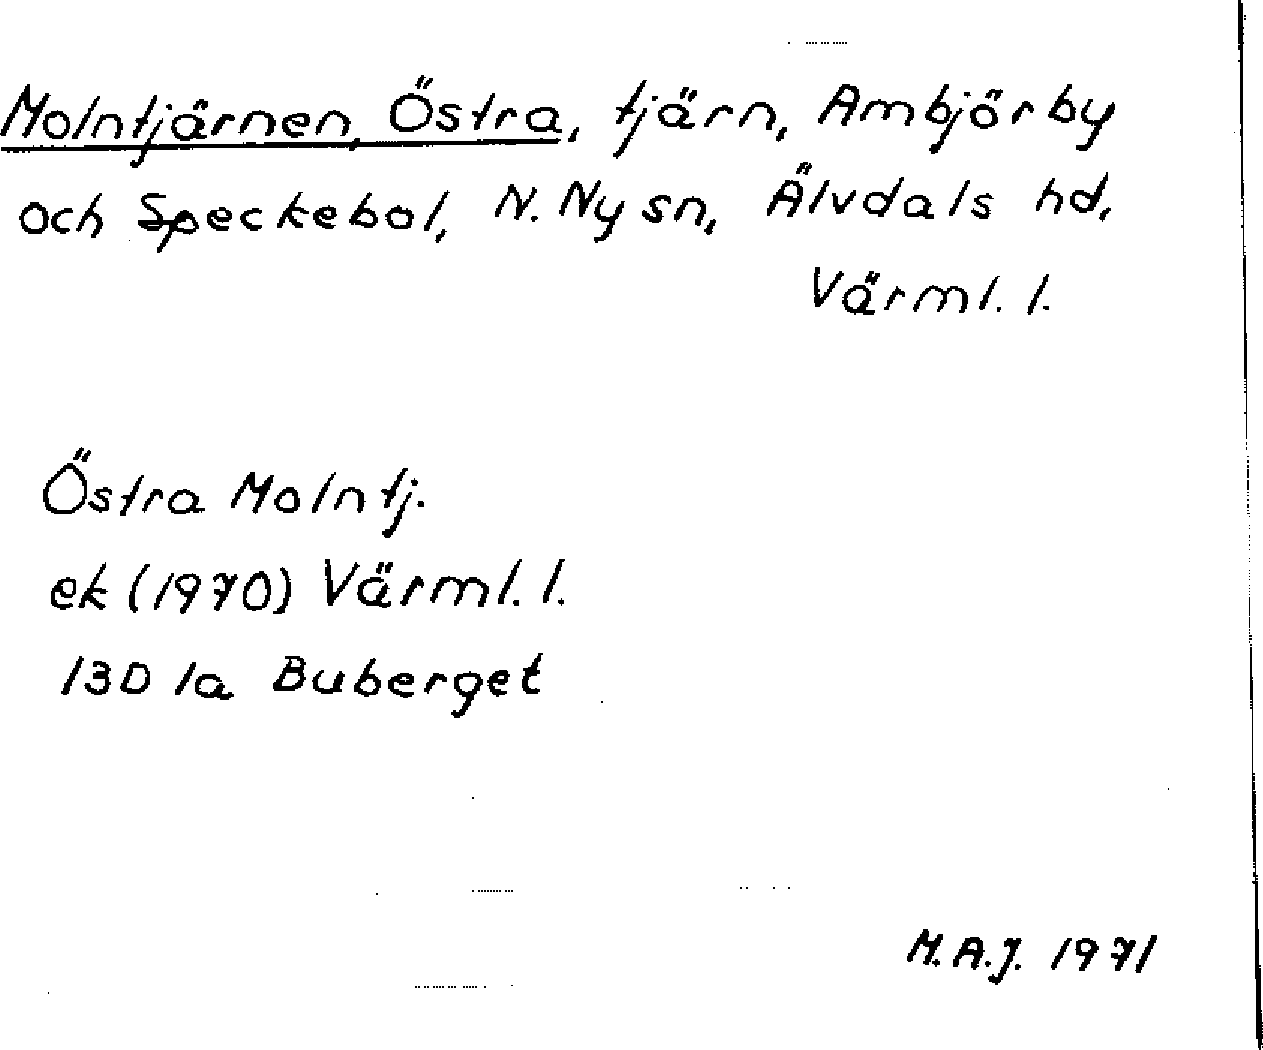 Molntjärnen, Östra, tjärn, Ambjörby
och Speckebol, N. Ny sn, Älvdals hd,
Värml. l.
Östra Molntj.
ek (1970) Värml. l.
13D 1a Buberget
M.A.J. 1971